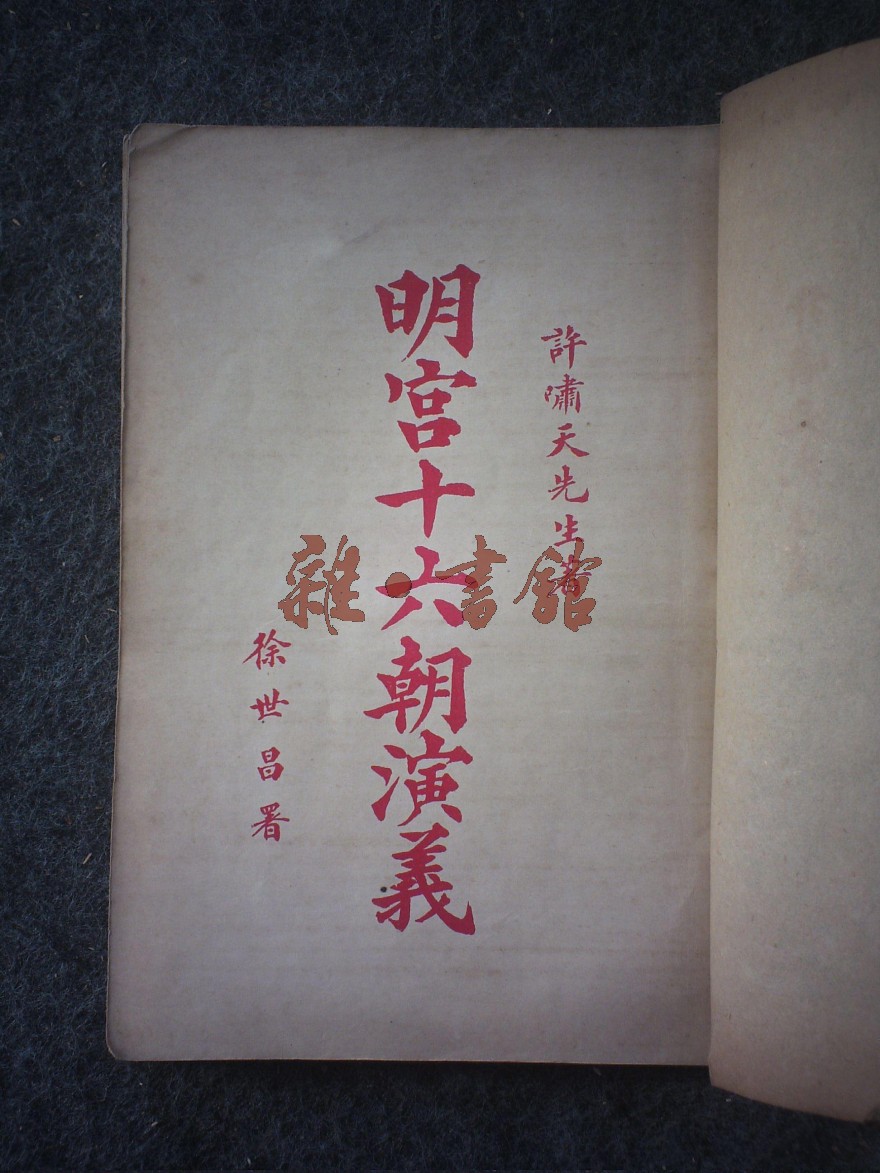 許嘯天先生著
明宮十六朝演義
徐世昌署
雜·書館